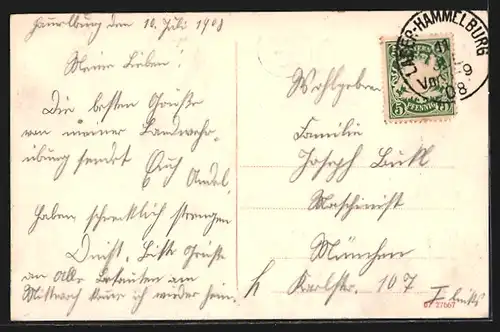 Hammelburg den 10. Juli 1908
Meine Lieben!
Die besten Grüße
von meiner Landwehr-
übung sendet Euch Andel.
Haben schrecklich strengen
Dienst. Bitte Grüße
an Alle Bekannten am
Mittwoch komme ich wieder heim.
LAGER-HAMMELBURG
Vm
08
5 PFENNIG 5
Wohlgeboren
Familie
Joseph
Maschinist
München
Karlstr. 107 I links
67 27667